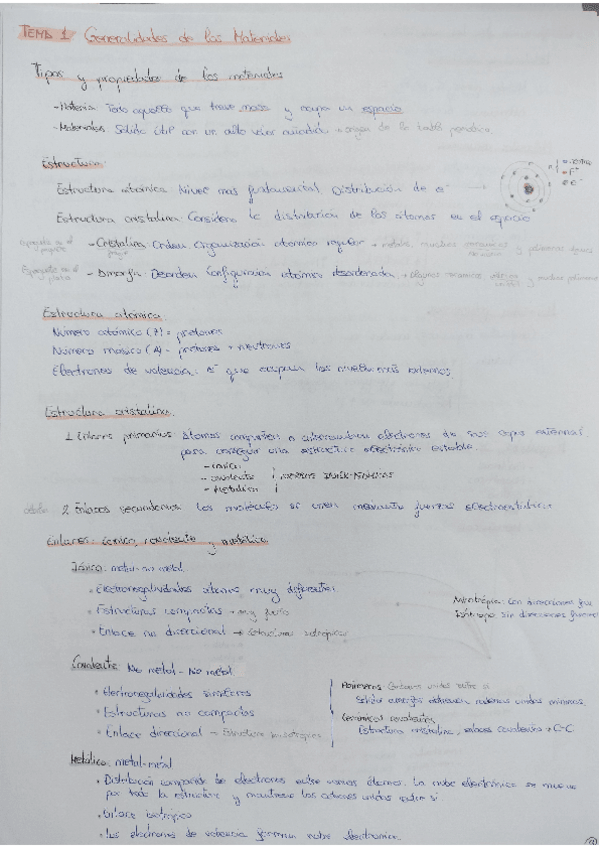 TEMA 1 Generalidades de los Materiales
Tipos y propiedades de los materiales
- Materia: Todo aquello que tiene masa y ocupa un espacio
- Materiales: Sólido útil con un alto valor añadido → de la tabla periódica
Estructura
Estructura atómica: Nivel más fundamental. Distribución de e⁻
Estructura cristalina: Considera la distribución de los átomos en el espacio
- Cristalina: Orden. Organización atómica regular → metales, muchos cerámicos y polímeros
- Amorfa: Desorden. Configuración atómica desordenada → algunos cerámicos y muchos polímeros
Estructura atómica
Número atómico (Z) = protones
Número másico (A) = protones + neutrones
Electrones de valencia: e⁻ que ocupan los niveles más externos
Estructura cristalina
1 Enlaces primarios: Átomos comparten o intercambian electrones de sus capas externas
para conseguir una estructura electrónica estable
- iónico
- covalente
- metálico
2 Enlaces secundarios: Las moléculas se unen mediante fuerzas electrostáticas
Enlaces: iónico, covalente y metálico
Iónico: metal-no metal
• Electronegatividades átomos muy diferentes
• Estructuras compactas → muy
• Enlace no direccional → estructuras isotrópicas
Anisotropía: con direcciones
Isótropo: sin direcciones
Covalente: No metal - No metal
• Electronegatividades similares
• Estructuras no compactas
• Enlace direccional → Estructuras anisotrópicas
Polímeros: unidas entre sí
cadenas unidas mismas
Cerámicas covalentes
Estructura cristalina, enlaces covalentes → C-C
Metálico: metal-metal
• Distribución compartida de electrones entre varios átomos. La nube electrónica se mueve
por toda la estructura y mantiene los cationes unidos entre sí
• Enlace isotrópico
• Los electrones de valencia forman nube electrónica.